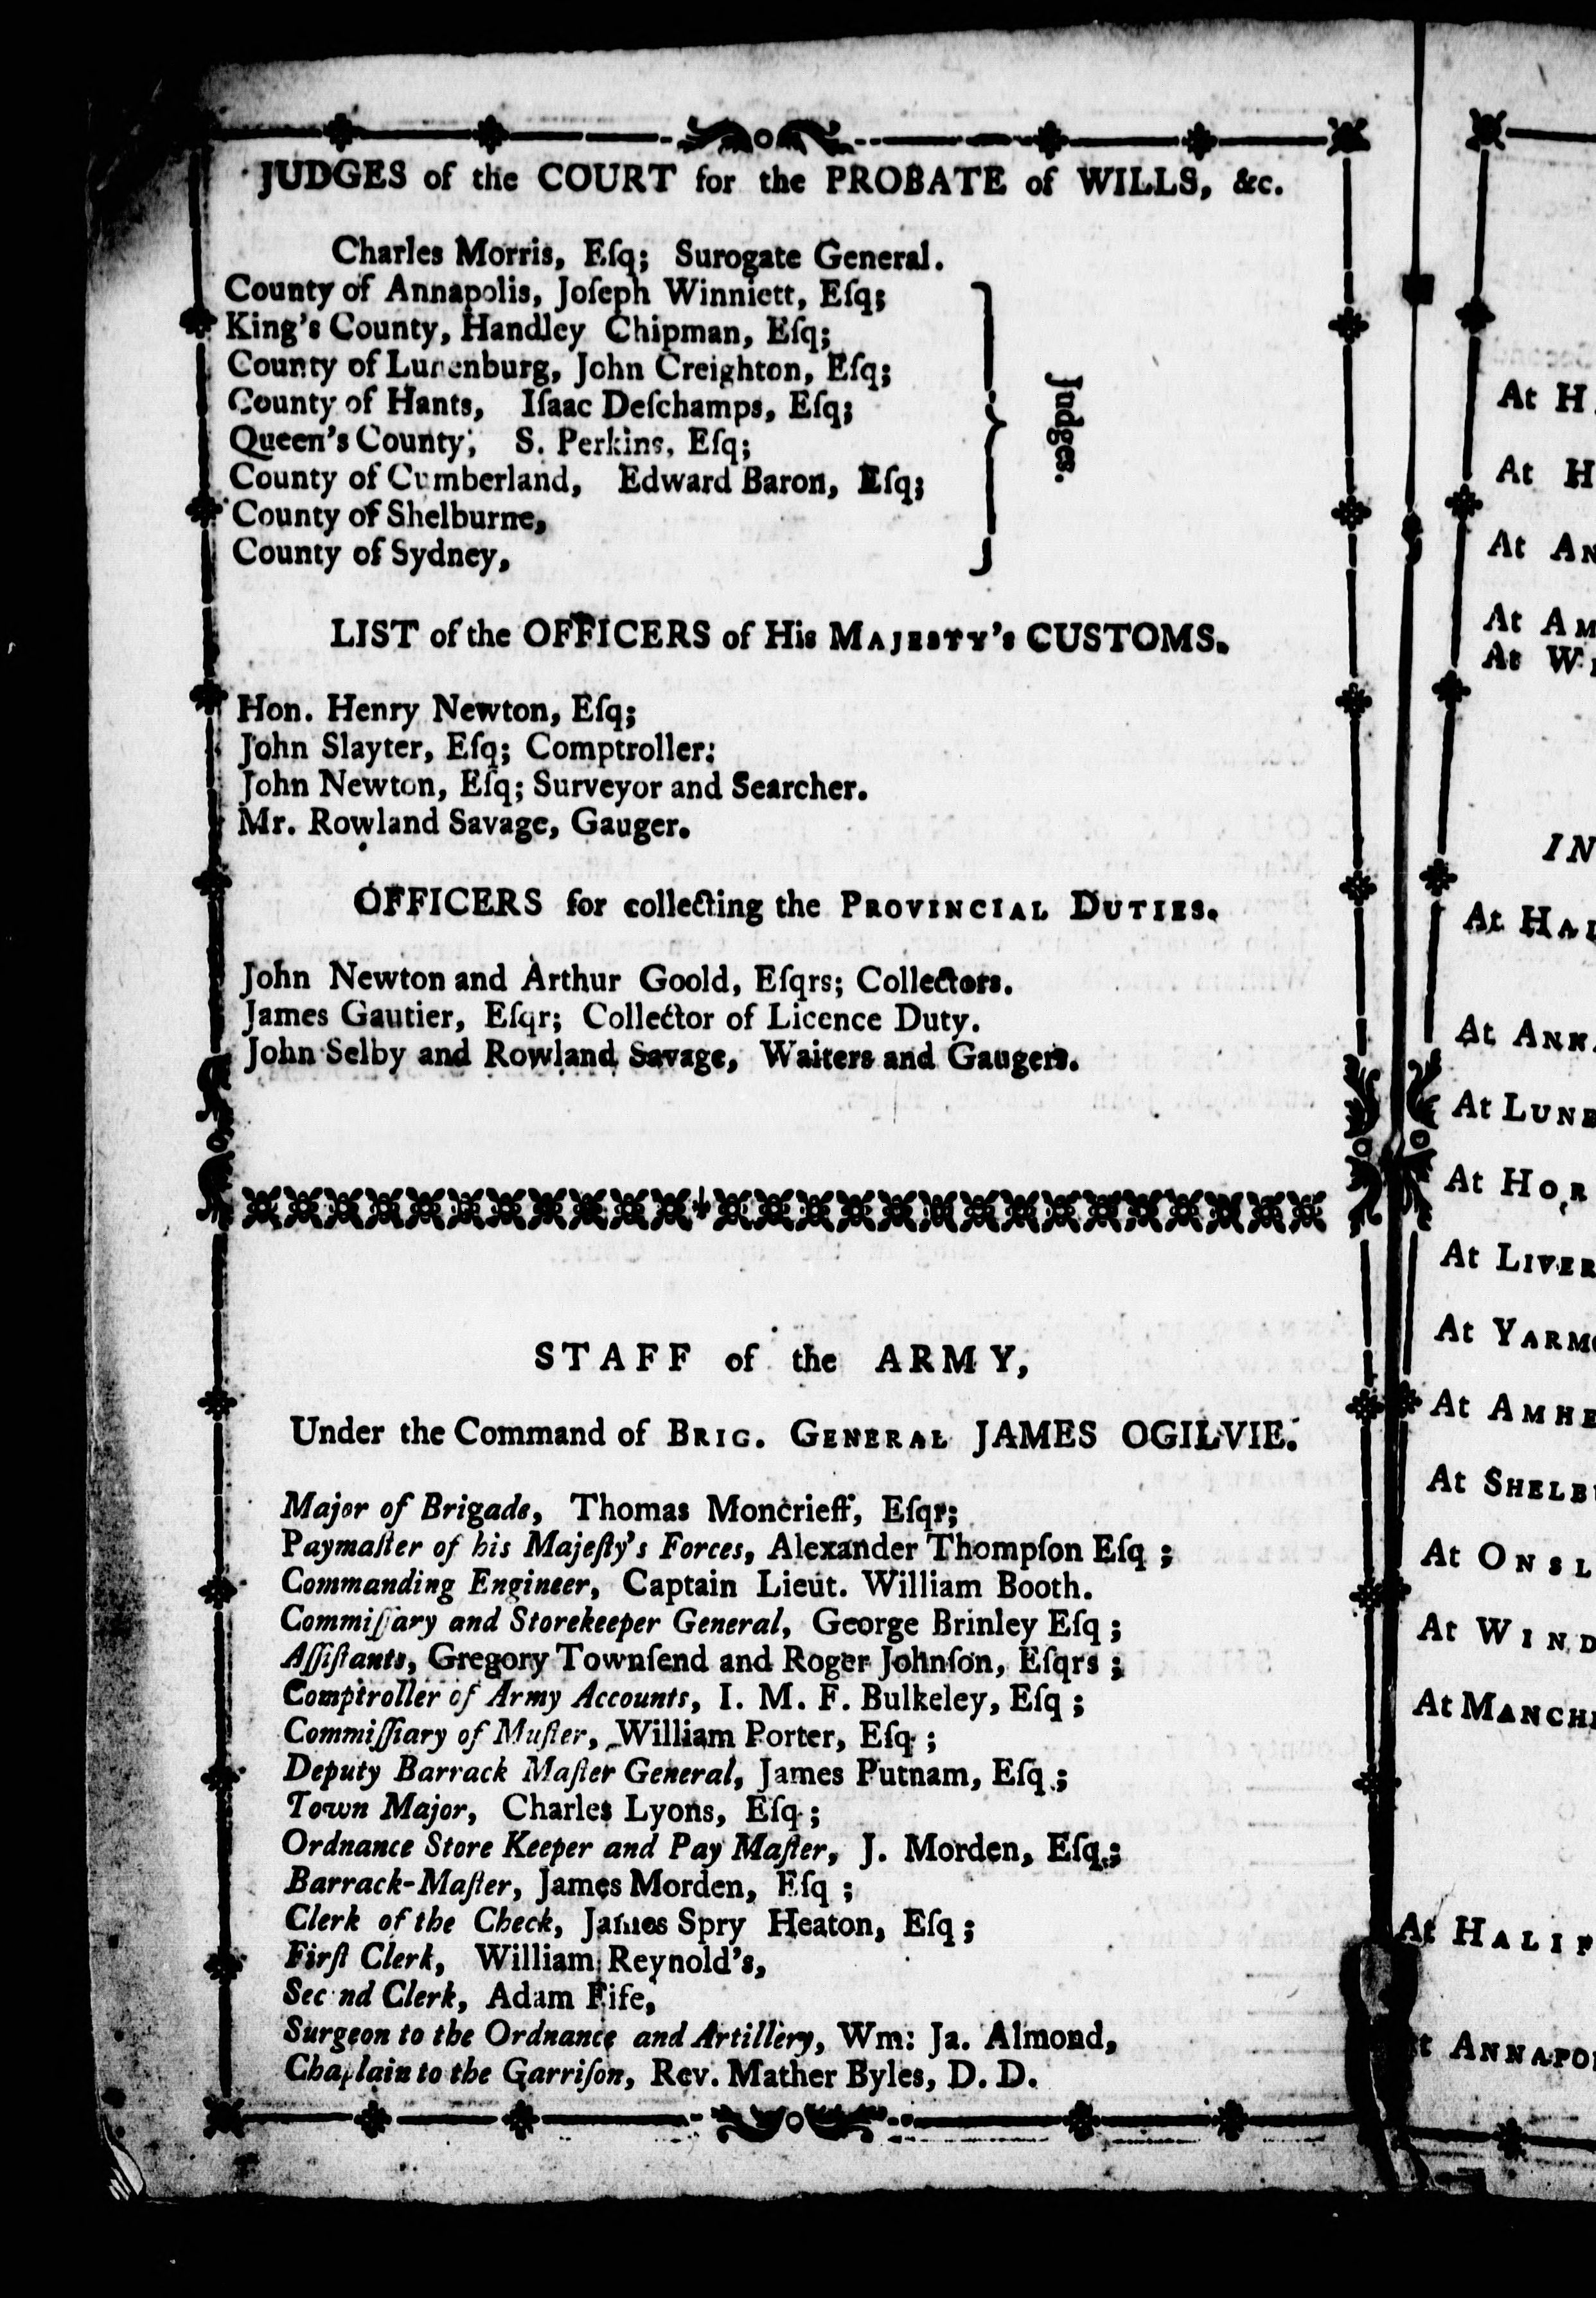 JUDGES of the COURT for the PROBATE of WILLS, &c.
Charles Morris, Eſq; Surogate General.
County of Annapolis, Joſeph Winniett, Eſq;
King's County, Handley Chipman, Eſq;
County of Lunenburg, John Creighton, Eſq;
County of Hants, Iſaac Deſchamps, Eſq;
Queen's County, S. Perkins, Eſq;
County of Cumberland, Edward Baron, Eſq;
County of Shelburne,
County of Sydney,
Judges.
LIST of the OFFICERS of His MAJESTY's CUSTOMS.
Hon. Henry Newton, Eſq;
John Slayter, Eſq; Comptroller:
John Newton, Eſq; Surveyor and Searcher.
Mr. Rowland Savage, Gauger.
OFFICERS for collecting the PROVINCIAL DUTIES.
John Newton and Arthur Goold, Eſqrs; Collectors.
James Gautier, Eſqr; Collector of Licence Duty.
John Selby and Rowland Savage, Waiters and Gaugers.
STAFF of the ARMY,
Under the Command of BRIG. GENERAL JAMES OGILVIE.
Major of Brigade, Thomas Moncrieff, Eſqr;
Paymaſter of his Majeſty's Forces, Alexander Thompſon Eſq ;
Commanding Engineer, Captain Lieut. William Booth.
Commiſſary and Storekeeper General, George Brinley Eſq ;
Aſſiſtants, Gregory Townſend and Roger Johnſon, Eſqrs ;
Comptroller of Army Accounts, I. M. F. Bulkeley, Eſq ;
Commiſſiary of Muſter, William Porter, Eſq ;
Deputy Barrack Maſter General, James Putnam, Eſq ;
Town Major, Charles Lyons, Eſq ;
Ordnance Store Keeper and Pay Maſter, J. Morden, Eſq ;
Barrack-Maſter, James Morden, Eſq ;
Clerk of the Check, James Spry Heaton, Eſq ;
Firſt Clerk, William Reynold's,
Sec nd Clerk, Adam Fife,
Surgeon to the Ordnance and Artillery, Wm: Ja. Almond,
Chaplain to the Garriſon, Rev. Mather Byles, D. D.
At H
At H
At AN
At AM
At W
IN
At HAL
At ANN
At LUNE
At HOR
At LIVER
At YARMO
At AMHE
At SHELB
At ONSL
At WIND
At MANCH
At HALIF
At ANNAPO